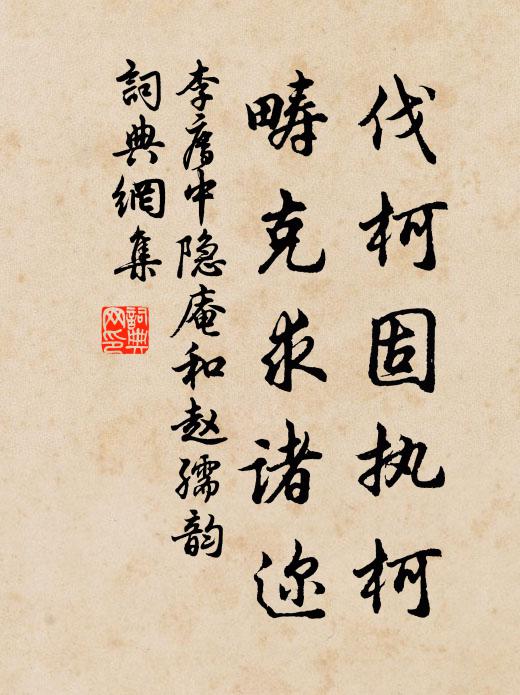 伐柯固执柯
畴克求诸迩
李廌中隐庵和赵孺韵
詞典網集
詞典网印